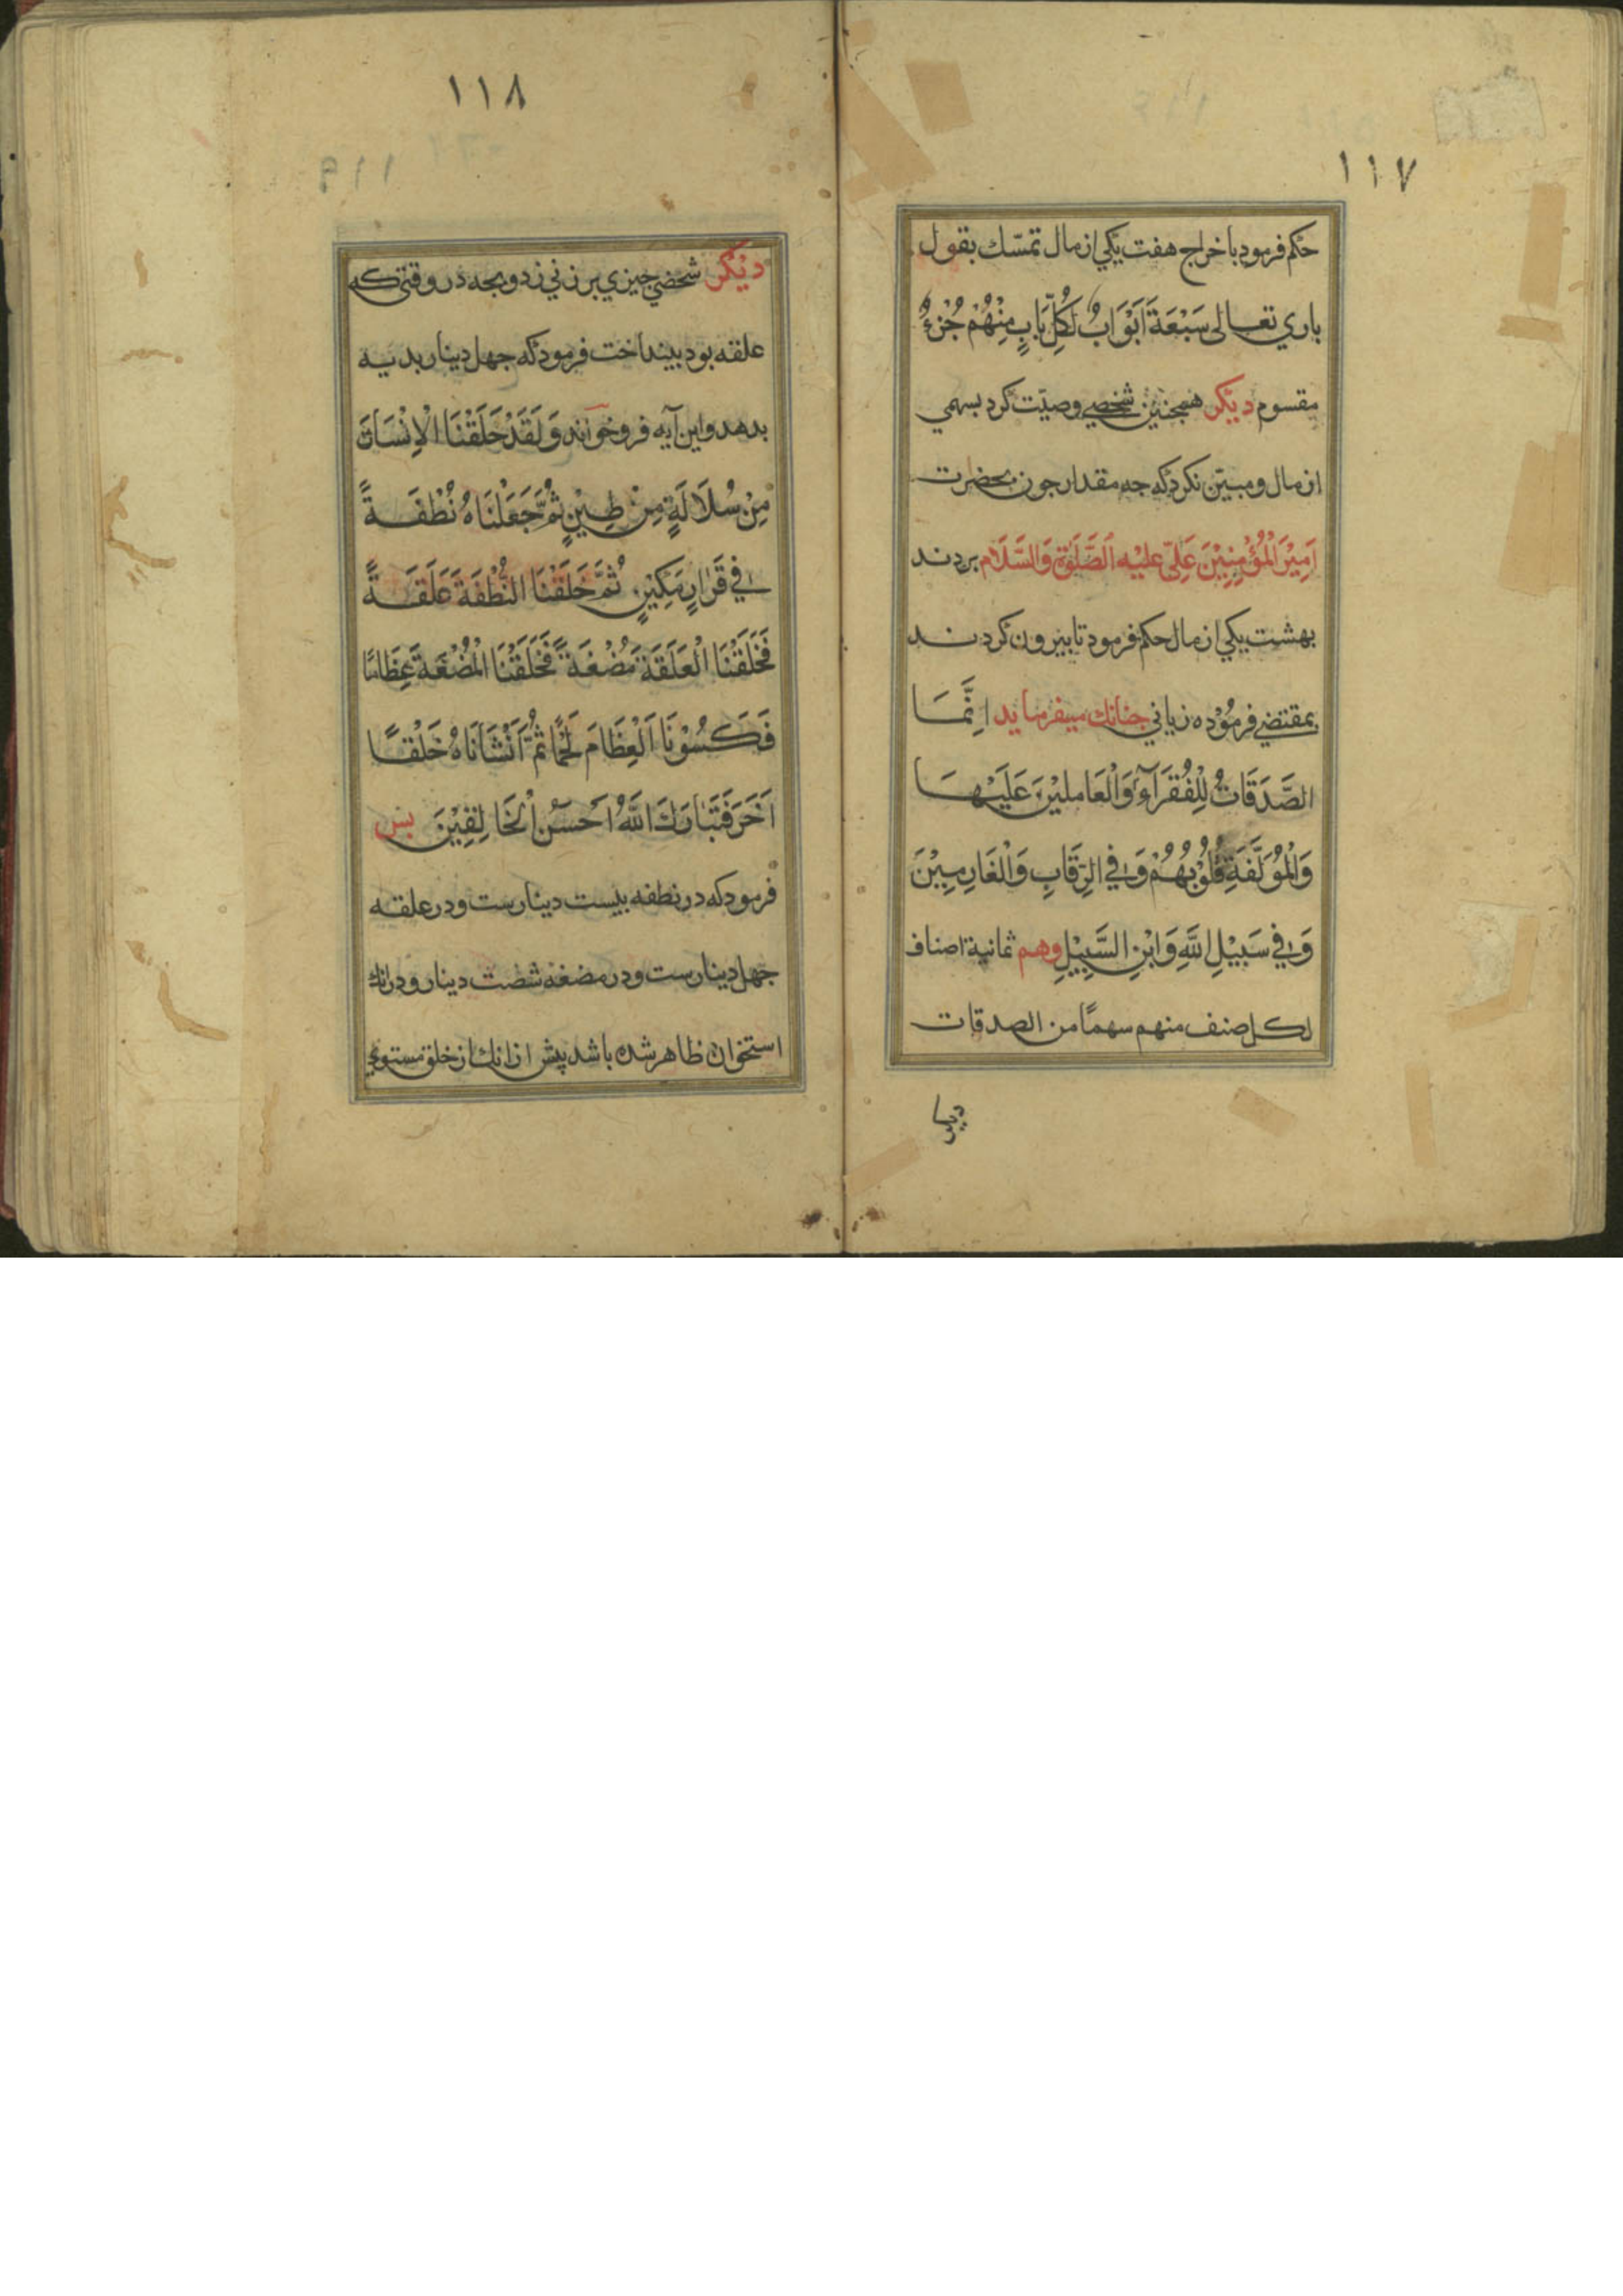 ١١٧
حکم فرمود باخراج هفت یکی از مال تمسّك بقول
باري تعالی سَبْعَةَ اَبْوَابٌ لَکُلِّ بَابٍ مِنْهُمْ جُزءٌ
مقسوم دیکر همجنین شخصی وصیّت کرد بسهمی
از مال و مبیّن نکرد که جه مقدار جون بحضرت
اَمِیْرَ الْمُؤْمِنِیْنَ عَلِیّ علیْه الصَّلٰوة وَالسَّلَام بردند
بهشت یکی از مال حکم فرمود تا بیرون کردند
بمقتضی فرمُوْده زبانی جنانك میفرماید اِنَّمَا
الصَّدَقَاتُ لِلْفُقَرَآءِ وَالْعَاملِیْنَ عَلَیْهَا
وَالْمُوَلَّفَةِ قُلُوْبُهُمْ وَفِي الرِّقَابِ وَالْغَارِمِیْنَ
وَفِي سَبِیْلِ اللَّهِ وَابْنِ السَّبِیْلِ وهم ثمانیة اصناف
لکل صنف منهم سهمًا من الصدقات
١١٨
دیْکر شخصی جیزي بر زنی زد و بجه در وقتی که
علقه بود بینداخت فرمود که جهل دینار بدیه
بدهد و این آیه فرو خواند وَلَقَدْ خَلَقْنَا الْاِنْسَانَ
مِنْ سُلَالَةٍ مِنْ طِیْنٍ ثُمَّ جَعَلْنَاهُ نُطْفَةً
فِي قَرَارٍ مَکِیْنٍ ثُمَّ خَلَقْنَا النُّطْفَةَ عَلَقَةً
فَخَلَقْنَا الْعَلَقَةَ مُضْغَةً فَخَلَقْنَا الْمُضْغَةَ عِظَامًا
فَکَسُوْنَا الْعِظَامَ لَحْمًا ثُمَّ اَنْشَانَاهُ خَلْقًا
اَخَرَ فَتَبَارَكَ اللَّهُ اَحْسَنُ الْخَالِقِیْنَ بس
فرمود که در نطفه بیست دینارست و در علقه
جهل دینارست و در مضغه شصت دینار و در انك
استخوان ظاهر شده باشد پیش از انك از خلق مستوي